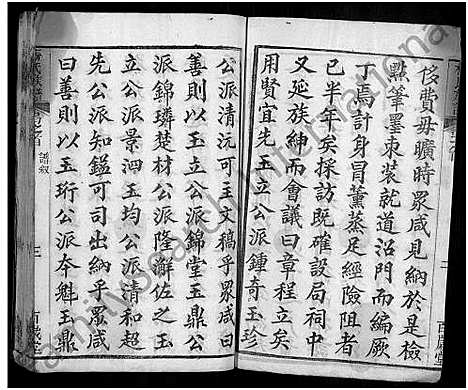 侈費毋曠時衆咸見納於是檢
點筆墨束裝就道沿門而編厥
丁焉計身冒薰蒸足經險阻者
已半年矣採訪既確爰局祠中
又延族紳而會議曰章程立矣
用賢宜先玉立公派鍾奇玉珍
公派清沅可主文稿乎衆咸曰
善則以玉立公派錦堂玉鼎公
派錦璘楚材公派隆澥佐之玉
立公派泗玉均公派清和超
先公派知鎰可出納乎衆咸
曰善則以玉珩公派本魁玉鼎
譜叙
三
百歲堂
familysearch International